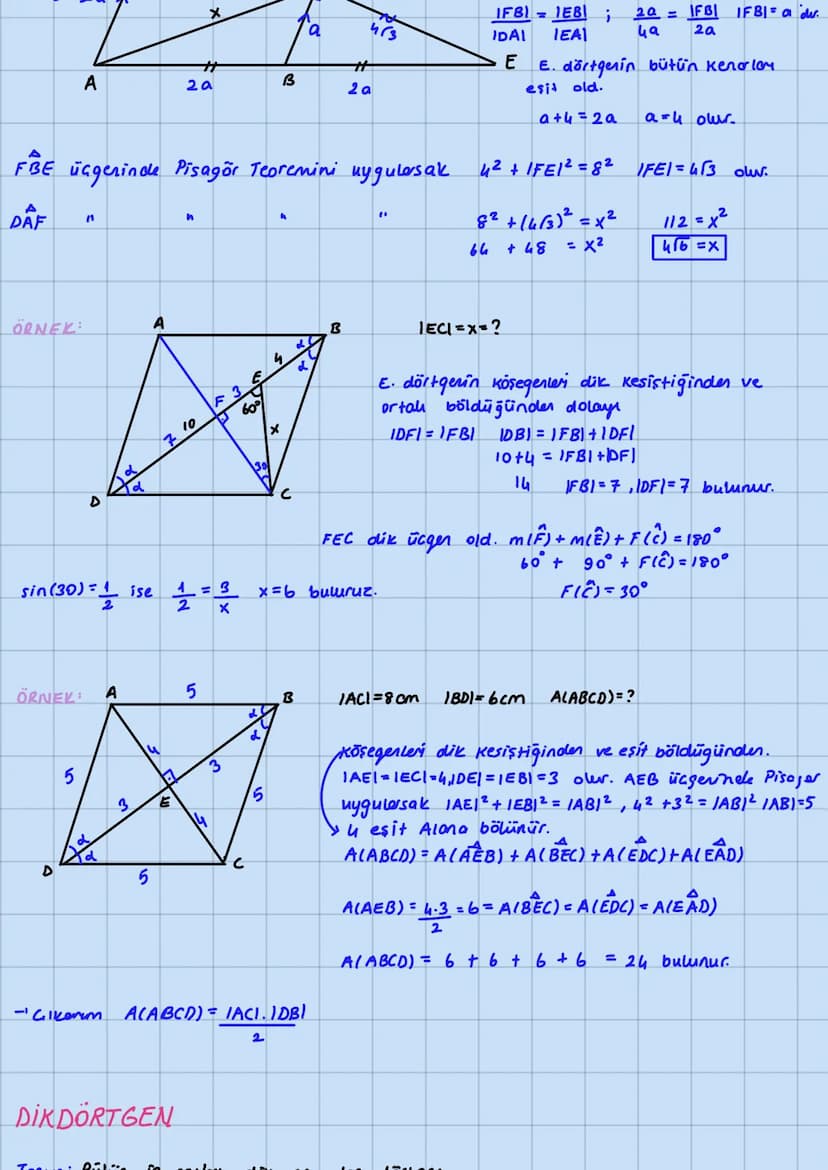 |FB| / |DA| = |EB| / |EA| ; 2a / 4a = |FB| / 2a |FB| = a 'dır.
x
a
4√3
A 2a B 2a E
E. dörtgenin bütün kenarları
eşit old.
a+4 = 2a a=4 olur.
FBE üçgeninde Pisagör Teoremini uygularsak 4² + |FE|² = 8² |FE| = 4√3 olur.
DAF " " " " 8² + (4√3)² = x² 112 = x²
64 + 48 = x² 4√6 = x
ÖRNEK: A B |EC| = x = ?
α
α
4
E
3
F
60°
10
7
x
30
α
α
D C
E. dörtgenin köşegenleri dik kesiştiğinden ve
ortalı böldüğünden dolayı
|DF| = |FB| |DB| = |FB| + |DF|
10+4 = |FB| + |DF|
14 |FB| = 7 , |DF| = 7 bulunur.
FEC dik üçgen old. m(F̂) + m(Ê) + F(Ĉ) = 180°
60° + 90° + F(Ĉ) = 180°
F(Ĉ) = 30°
sin(30) = 1/2 ise 1/2 = 3/x x=6 buluruz.
ÖRNEK: A 5 B |AC| = 8 cm |BD| = 6 cm A(ABCD) = ?
α
α
4
3
5
5
3
E
4
α
α
D 5 C
Köşegenleri dik kesiştiğinden ve eşit böldüğünden.
|AE| = |EC| = 4, |DE| = |EB| = 3 olur. AEB üçgeninde Pisagor
uygularsak |AE|² + |EB|² = |AB|² , 4² + 3² = |AB|² |AB| = 5
4 eşit Alana bölünür.
A(ABCD) = A(AEB) + A(BEC) + A(EDC) + A(EAD)
A(AEB) = 4.3 / 2 = 6 = A(BEC) = A(EDC) = A(EAD)
A(ABCD) = 6 + 6 + 6 + 6 = 24 bulunur.
Çıkarım A(ABCD) = |AC| . |DB| / 2
DİKDÖRTGEN